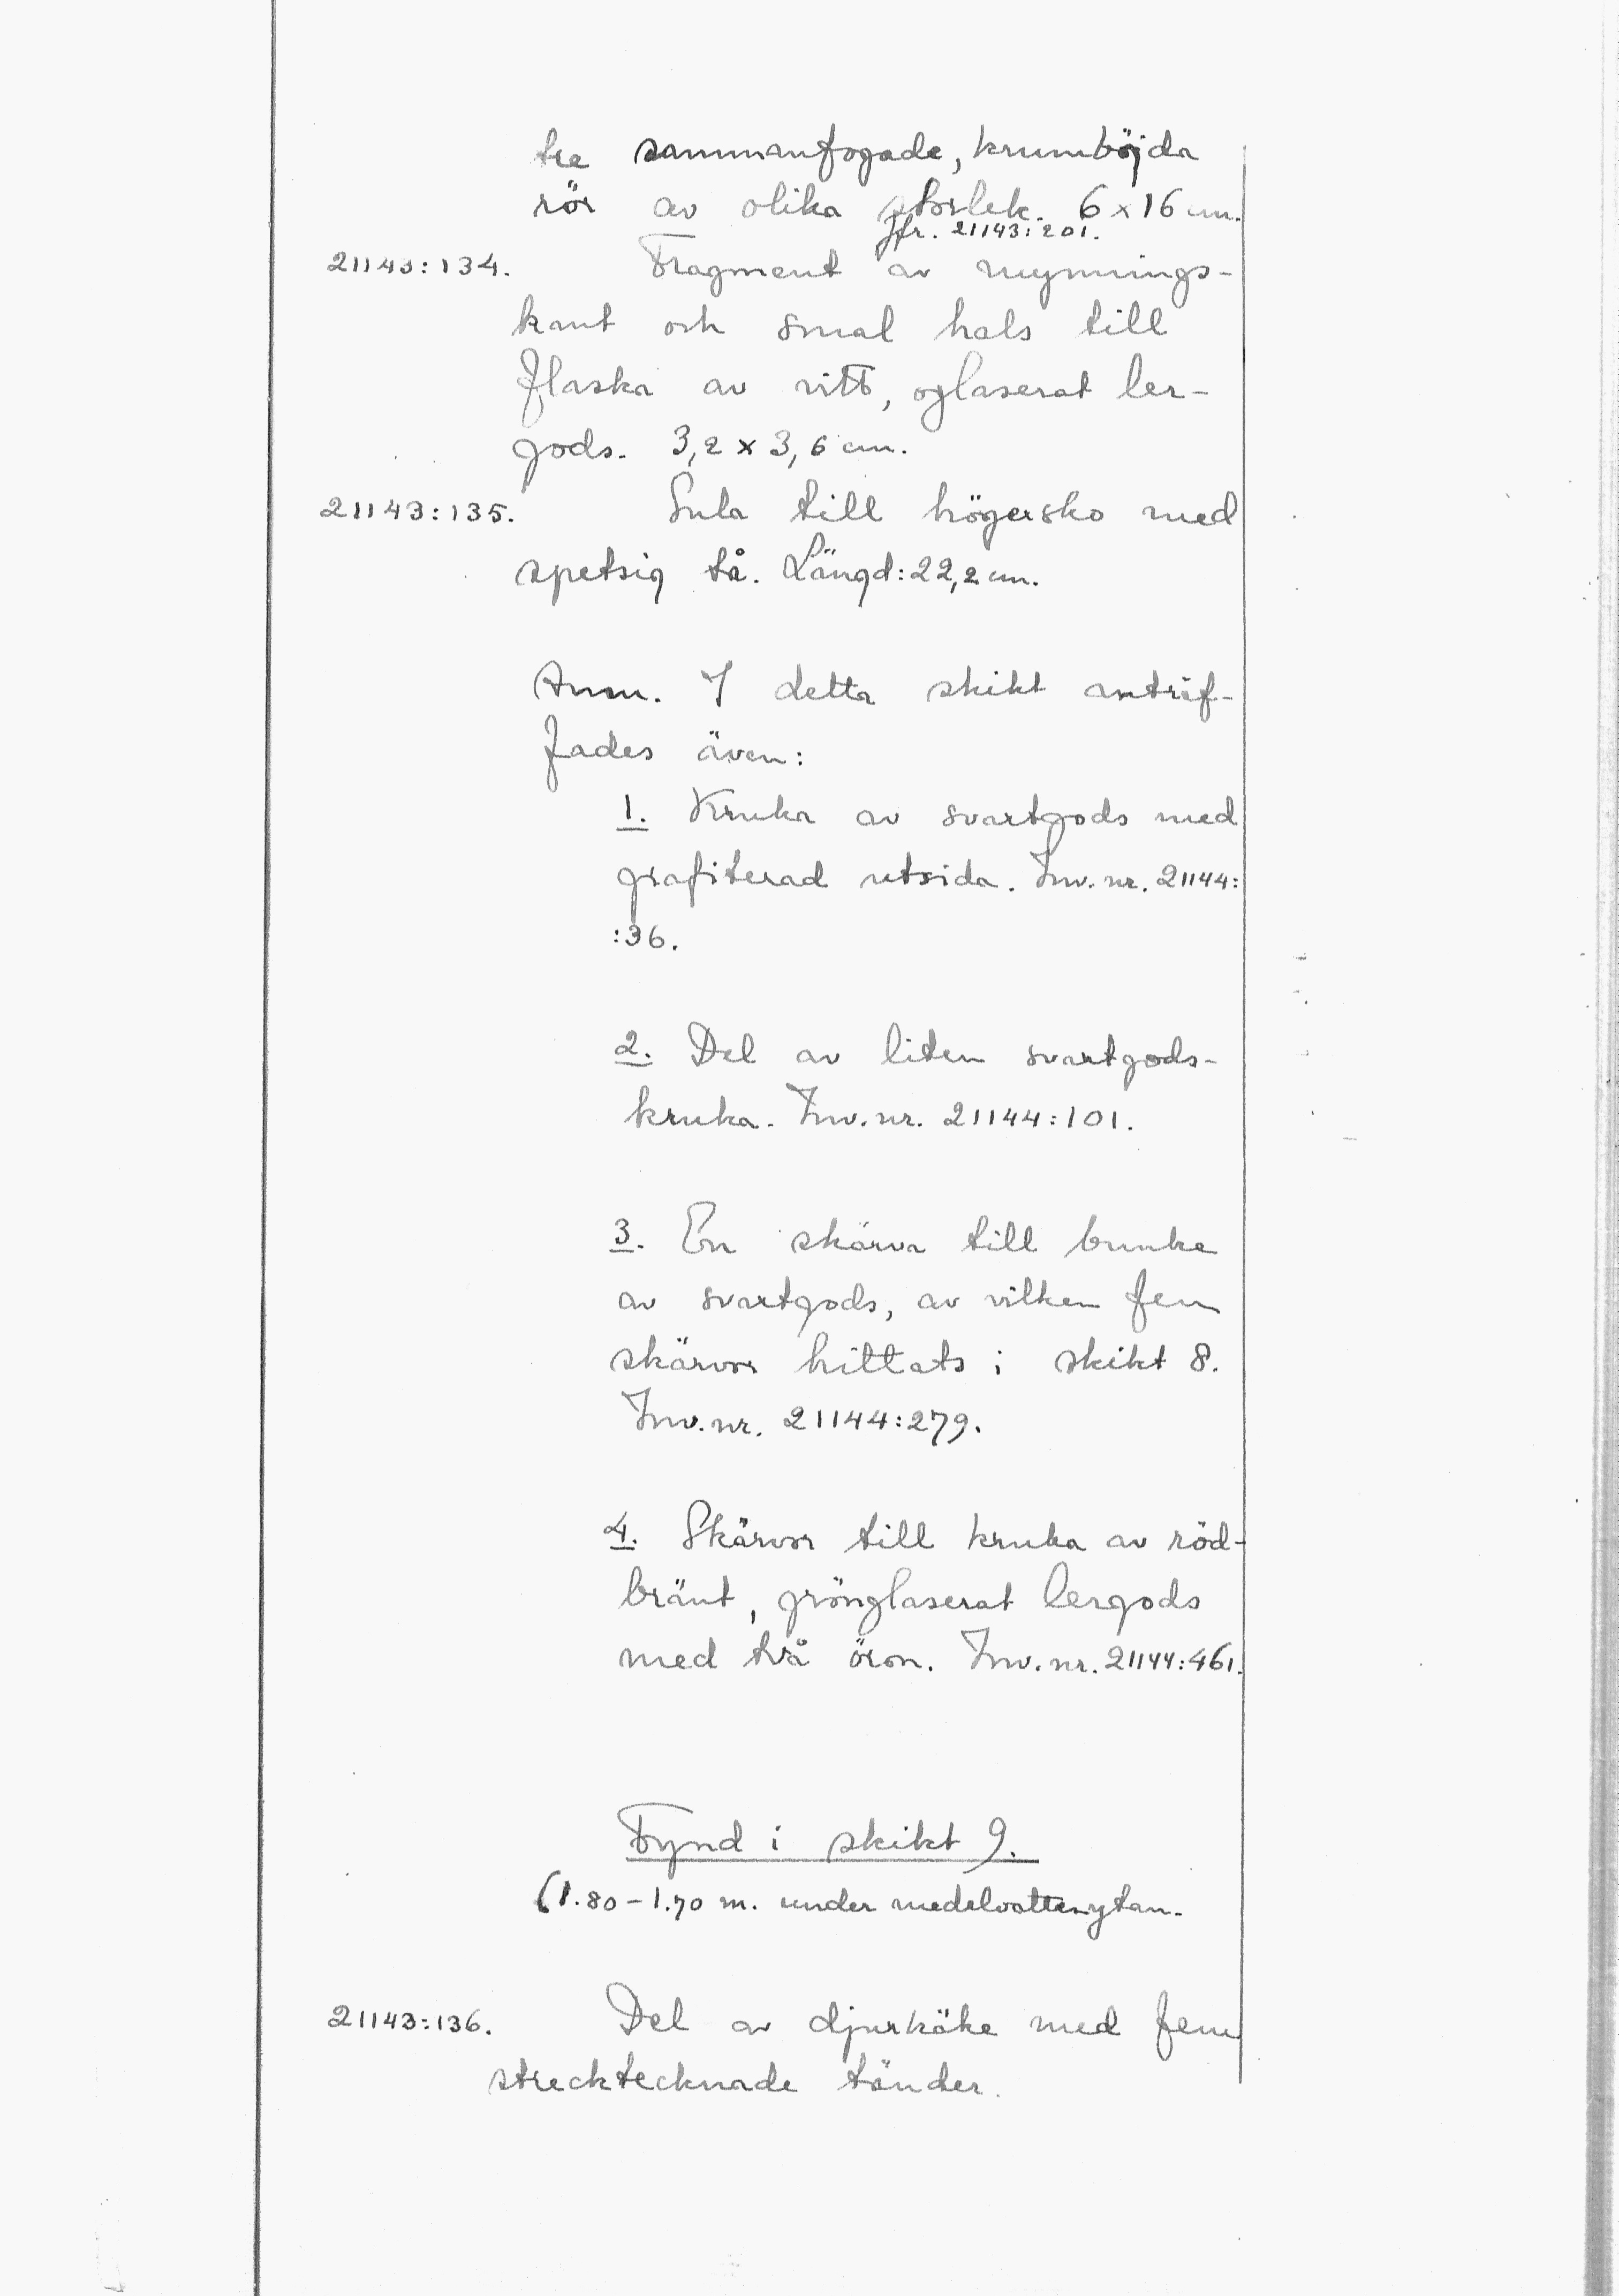 tre sammanfogade, krumböjda
rör av olika storlek. 6 x 16 cm.
Jfr. 21143:201.
21143:134. Fragment av mynnings-
kant och smal hals till
flaska av vitt, oglaserat ler-
gods. 3,2 x 3,6 cm.
21143:135. Sula till högersko med
spetsig tå. Längd: 22,2 cm.
Anm. I detta skikt anträf-
fades även:
1. Kruka av svartgods med
grafiterad utsida. Inv. nr. 21144:
:36.
2. Del av liten svartgods-
kruka. Inv. nr. 21144:101.
3. En skärva till bunke
av svartgods, av vilken fem
skärvor hittats i skikt 8.
Inv. nr. 21144:279.
4. Skärvor till kruka av röd-
bränt, grönglaserat lergods
med två öron. Inv. nr. 21144:461.
Fynd i skikt 9.
(1.80 - 1.70 m. under medelvattenytan.
21143:136. Del av djurkäke med fem
strecktecknade tänder.